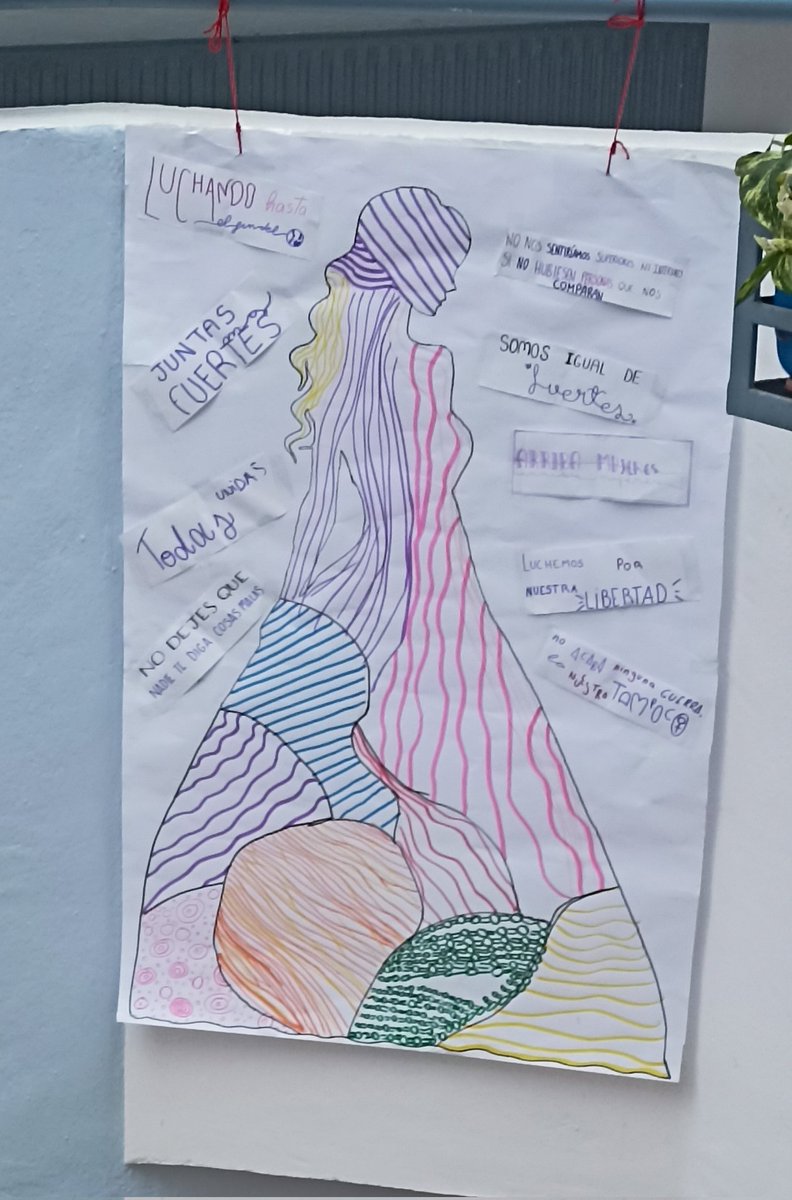 LUCHANDO hasta
el final
JUNTAS
más
FUERTES
Todas UNIDAS
NO DEJES QUE
NADIE TE DIGA COSAS MALAS
NO NOS SENTIRÍAMOS SUPERIORES NI INFERIORES
SI NO HUBIESEN PERSONAS QUE NOS
COMPARAN
SOMOS IGUAL DE
fuertes.
ARRIBA MUJERES
LUCHEMOS POR
NUESTRA LIBERTAD
no ACABÓ ninguna GUERRA.
La NUESTRA TAMPOCO